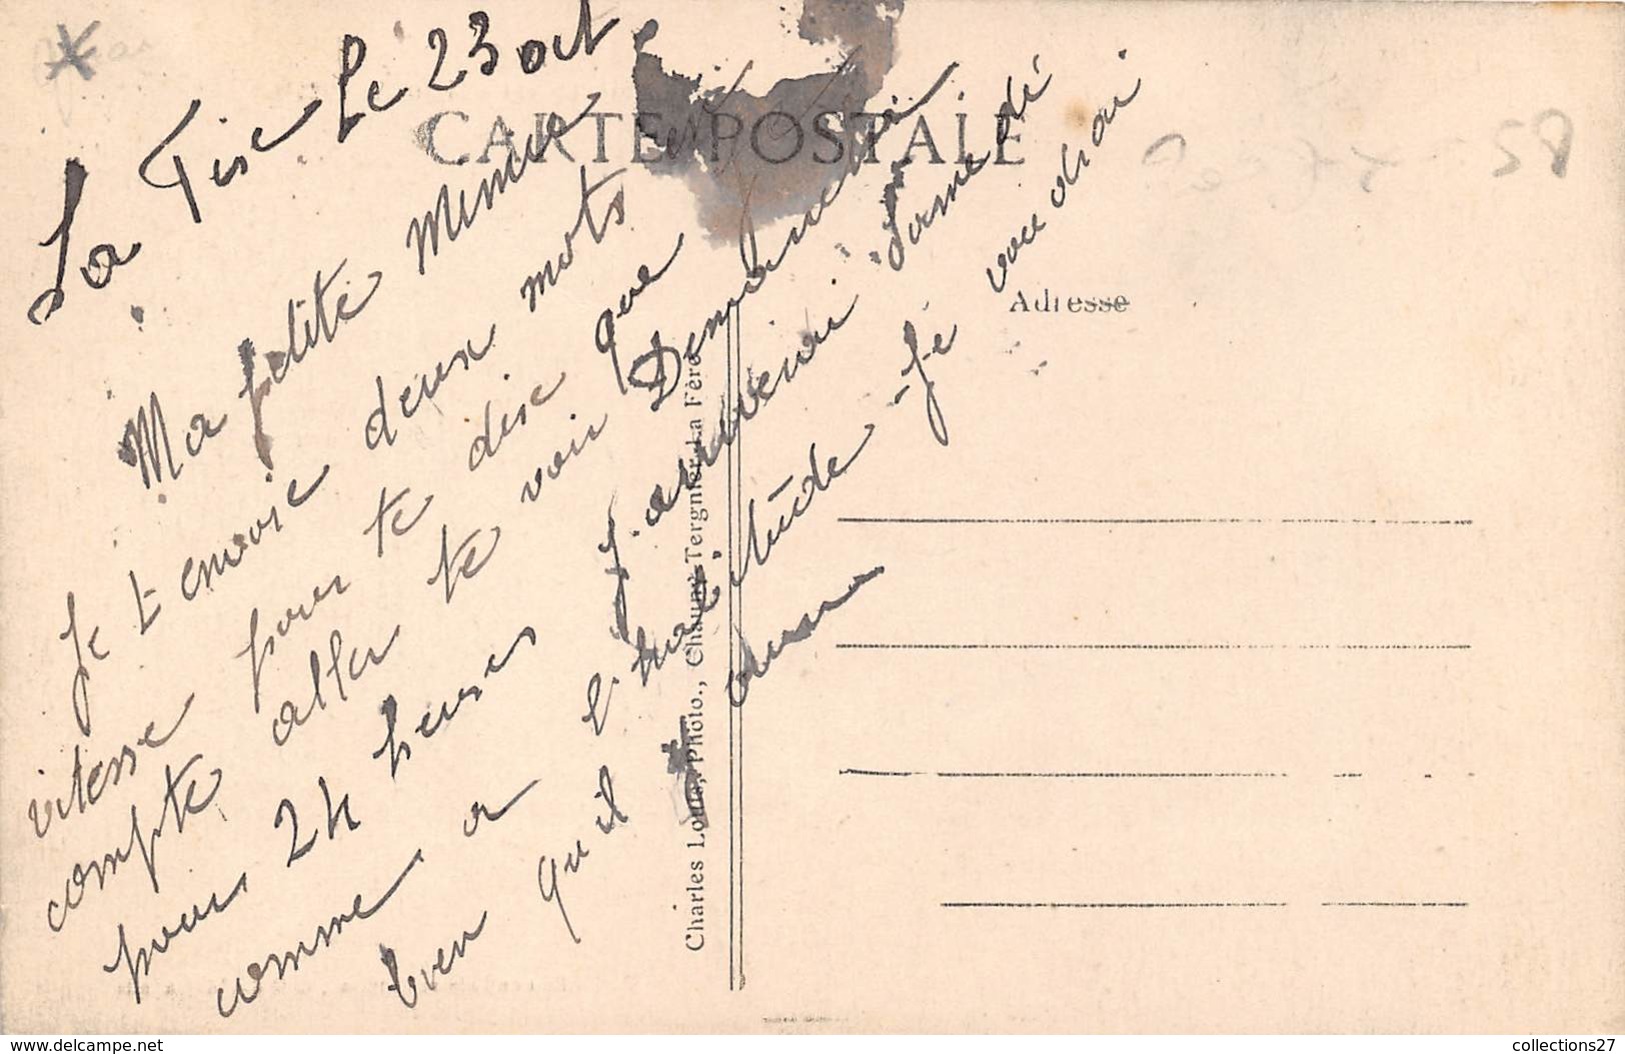 La Fère Le 23 oct
CARTE POSTALE
Ma petite Mimie
Je t envoie deux mots en
vitesse pour te dire que je
compte aller te voir Demanche
pour 24 heures j. arriverai Samedi
comme a l. habitude - Je voudrai
bien qu il
Adresse
Charles Louis, Photo., Chauny-Tergnier-La Fère
58
collections27
www.delcampe.net